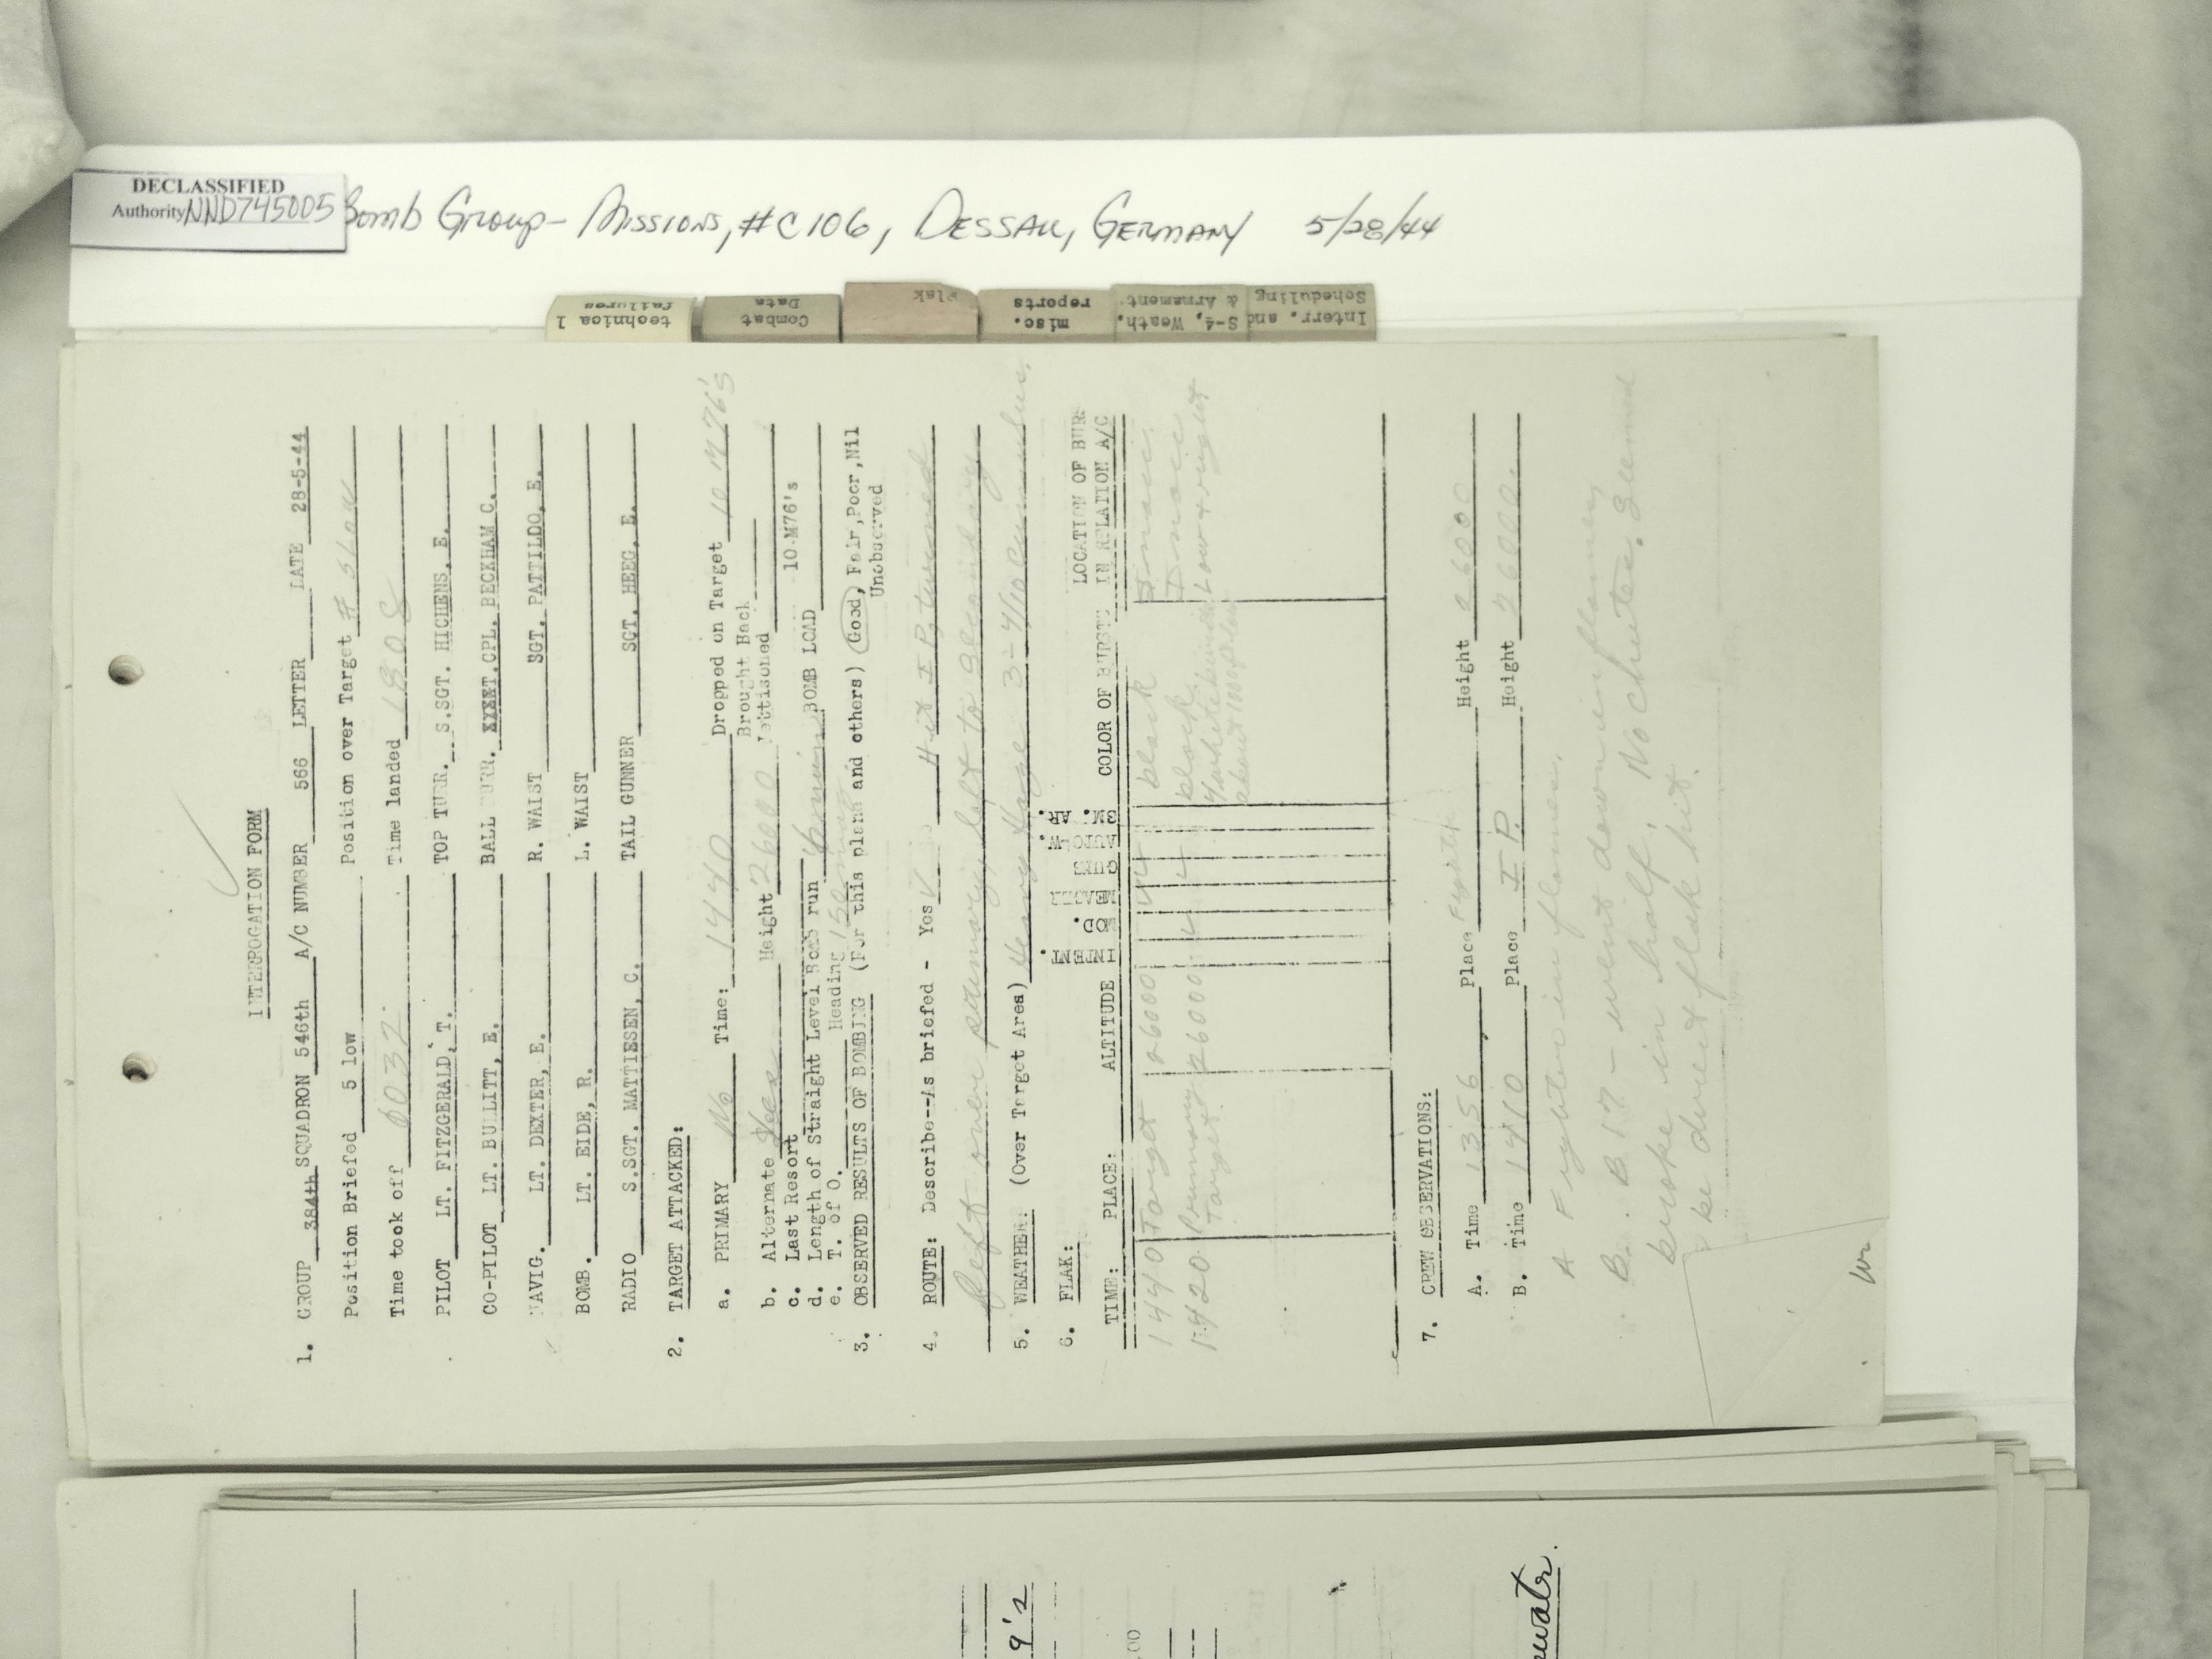 DECLASSIFIED
Authority NND745005
Bomb Group - Missions, #C106, Dessau, Germany 5/28/44
technical failures
Combat Data
Flak
misc. reports
S-4, Weath. & Armament
Interr. and Scheduling
INTERROGATION FORM
1. GROUP 384th SQUADRON 546th A/C NUMBER 566 LETTER DATE 28-5-44
Position Briefed 5 low Position over Target # 5 low
Time took off Time landed 1808
PILOT LT. FITZGERALD, T. TOP TURR. S.SGT. HICHENS, E.
CO-PILOT LT. BULLITT, E. BALL TURR. CPL. BECKHAM C.
NAVIG. LT. DEXTER, E. R. WAIST SGT. PATTILDO, E.
BOMB. LT. EIDE, R. L. WAIST
RADIO S.SGT. MATTIESEN, C. TAIL GUNNER SGT. HEEG, E.
2. TARGET ATTACKED:
a. PRIMARY No Time: 1440 Dropped on Target 10 M76's
Brought Back
b. Alternate Height 26000 Jettisoned
c. Last Resort 10 M76's
d. Length of Straight Level Bomb run BOMB LOAD
e. T. of O. Heading
3. OBSERVED RESULTS OF BOMBING (For this plane and others) Good, Fair, Poor, Nil
Unobserved
4. ROUTE: Describe--As briefed - Yes V At I P turned
left over primary left to secondary
5. WEATHER: (Over Target Area) Heavy Haze 3-4/10 Cummulus.
6. FLAK:
LOCATION OF BUR
TIME: PLACE: ALTITUDE INTENT MOD. MEAGER GUNS AUTO-W. SM. AR. COLOR OF BURSTS IN RELATION A/C
1440 Target 26000 black
1420 Primary Target 26000 black
Low & right
7. CREW OBSERVATIONS:
A. Time 1356 Place Height 26000
B. Time 1410 Place I P. Height 26000.
A Fighter in flames.
B. B 17 - went down in flames,
broke in half. No chutes. Seemed
be direct flak hit.
9's
00